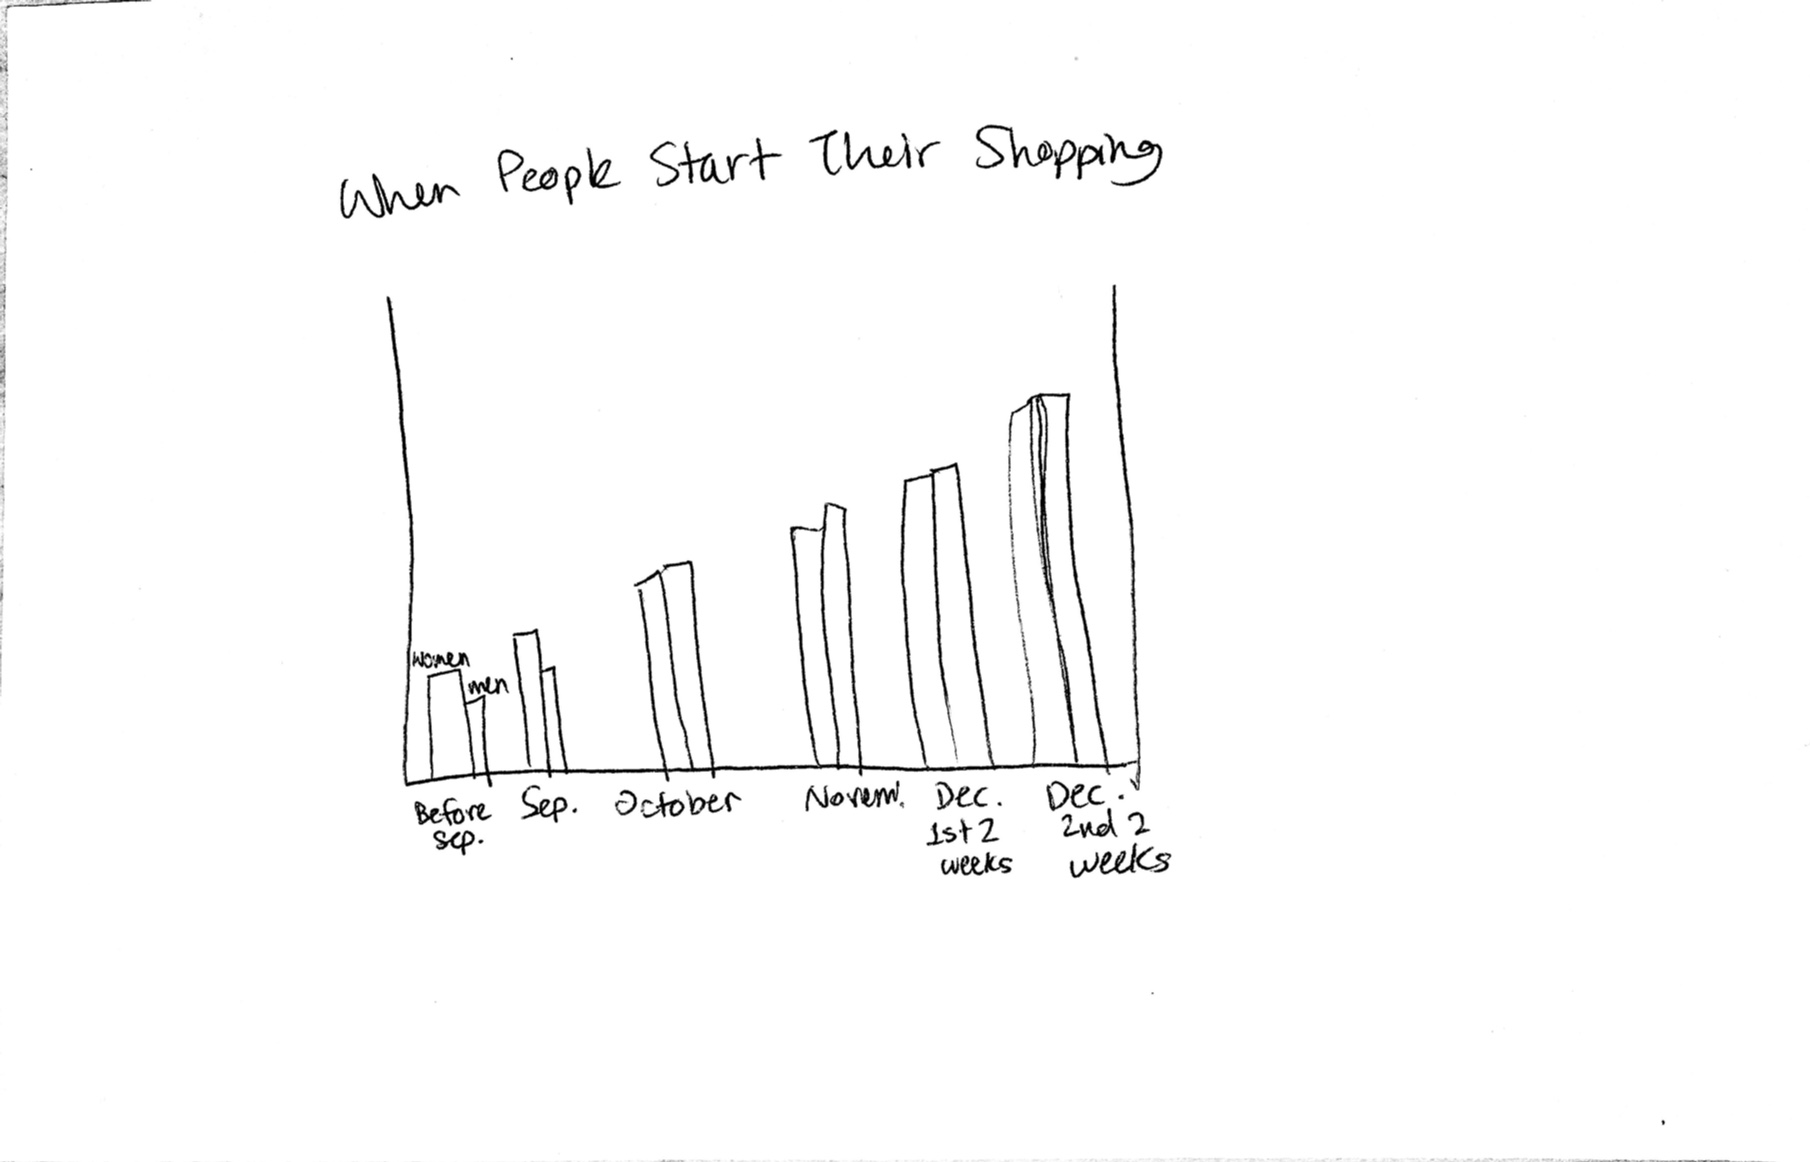 When People Start Their Shopping
women
men
Before
sep.
Sep.
October
Novem.
Dec.
1st 2
weeks
Dec.
2nd 2
weeks